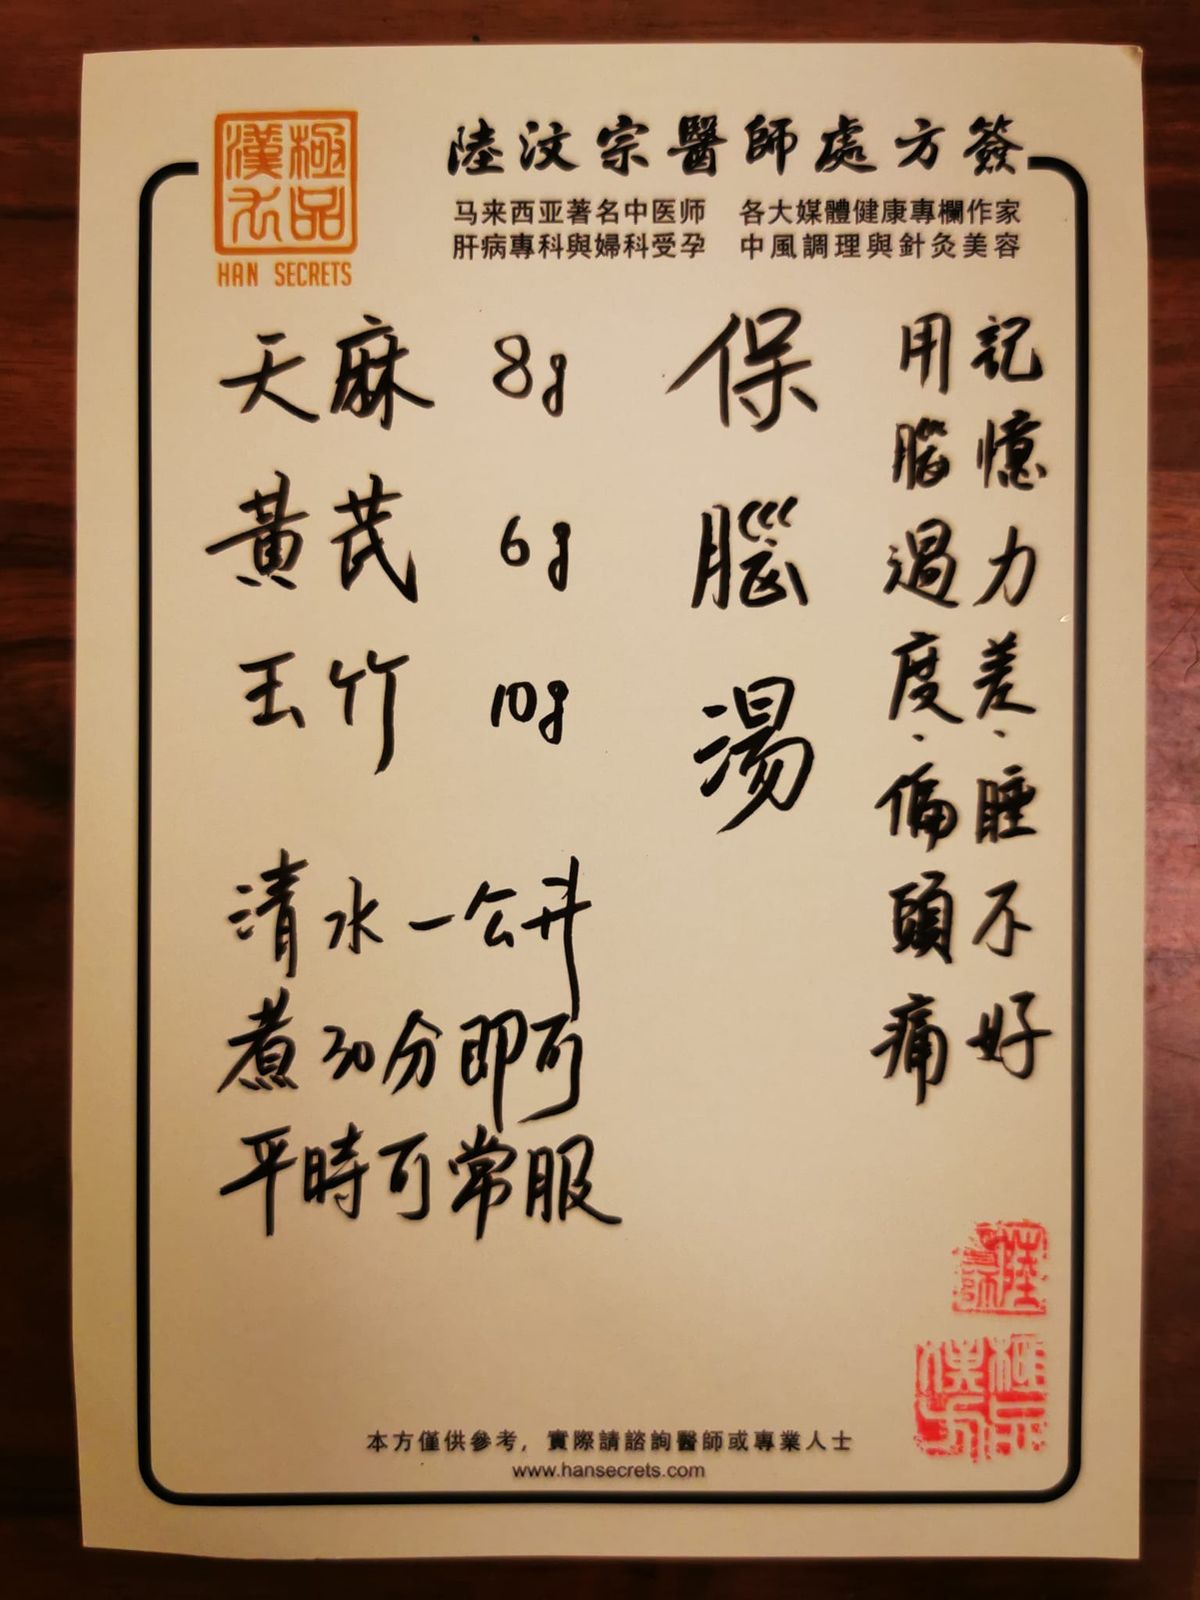 極品
漢方
HAN SECRETS
陸汶宗醫師處方簽
马来西亚著名中医师 各大媒體健康專欄作家
肝病專科與婦科受孕 中風調理與針灸美容
記憶力差、睡不好
用腦過度、偏頭痛
保腦湯
天麻 8g
黃芪 6g
玉竹 10g
清水一公升
煮30分即可
平時可常服
極品
漢方
本方僅供參考，實際請諮詢醫師或專業人士
www.hansecrets.com